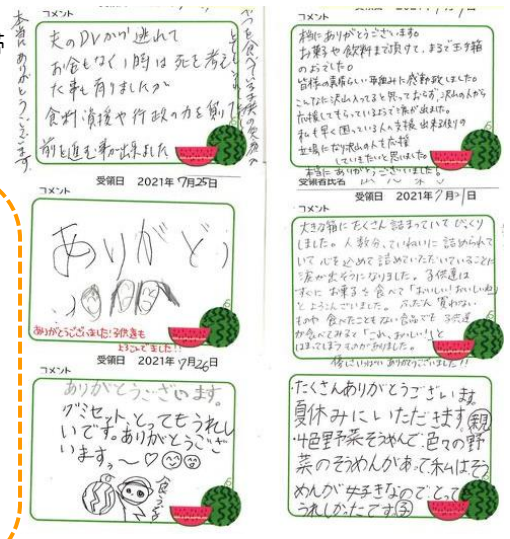 コメント
夫のDVから逃れて
お金もなく1時は死を考え
た事も有りましたが
食料資援や行政の力を借りて
前を進む事が出来ました
本当にありがとうございます。
受領日 2021年7月25日
コメント
ありがとう
ありがとうございました!子供達も
よろこんでました!!
受領日 2021年7月26日
コメント
ありがとうございます。
グミセットとってもうれし
いです。ありがとうござ
います。~♡
食うぞ
コメント
本当にありがとうございます。
お菓子や飲料まで頂けて、まるで玉手箱
のようでした。
皆様の素晴らしい取組みに感動致しました。
こんなに沢山入ってると思っておらず、沢山の人から
応援してもらっているようで涙が出ました。
私も早く困っている人の支援出来る限りの
立場になり沢山の人を応援
していきたいと思いました。
本当にありがとうございました。
受領者氏名
受領日 2021年7月21日
コメント
大きな箱にたくさん詰まっていてびっくり
しました。人数分、ていねいに詰められて
いて心を込めて詰めていただいていることに
涙が出そうになりました。子供達は
すぐにお菓子を食べて「おいしい!おいしいね」
とよろこんでいました。ふだん買わない
ものや食べたこともない食品でも子供達
が食べてみると「これ、おいしい!」と
はまってしまうものがありました。
ありがとうございました!!
コメント
・たくさんありがとうございます
夏休みにいただきます 親
・4色野菜そうめんで、色々の野
菜のそうめんがあって私はそう
めんが好きなので、とっても
うれしかったです 子